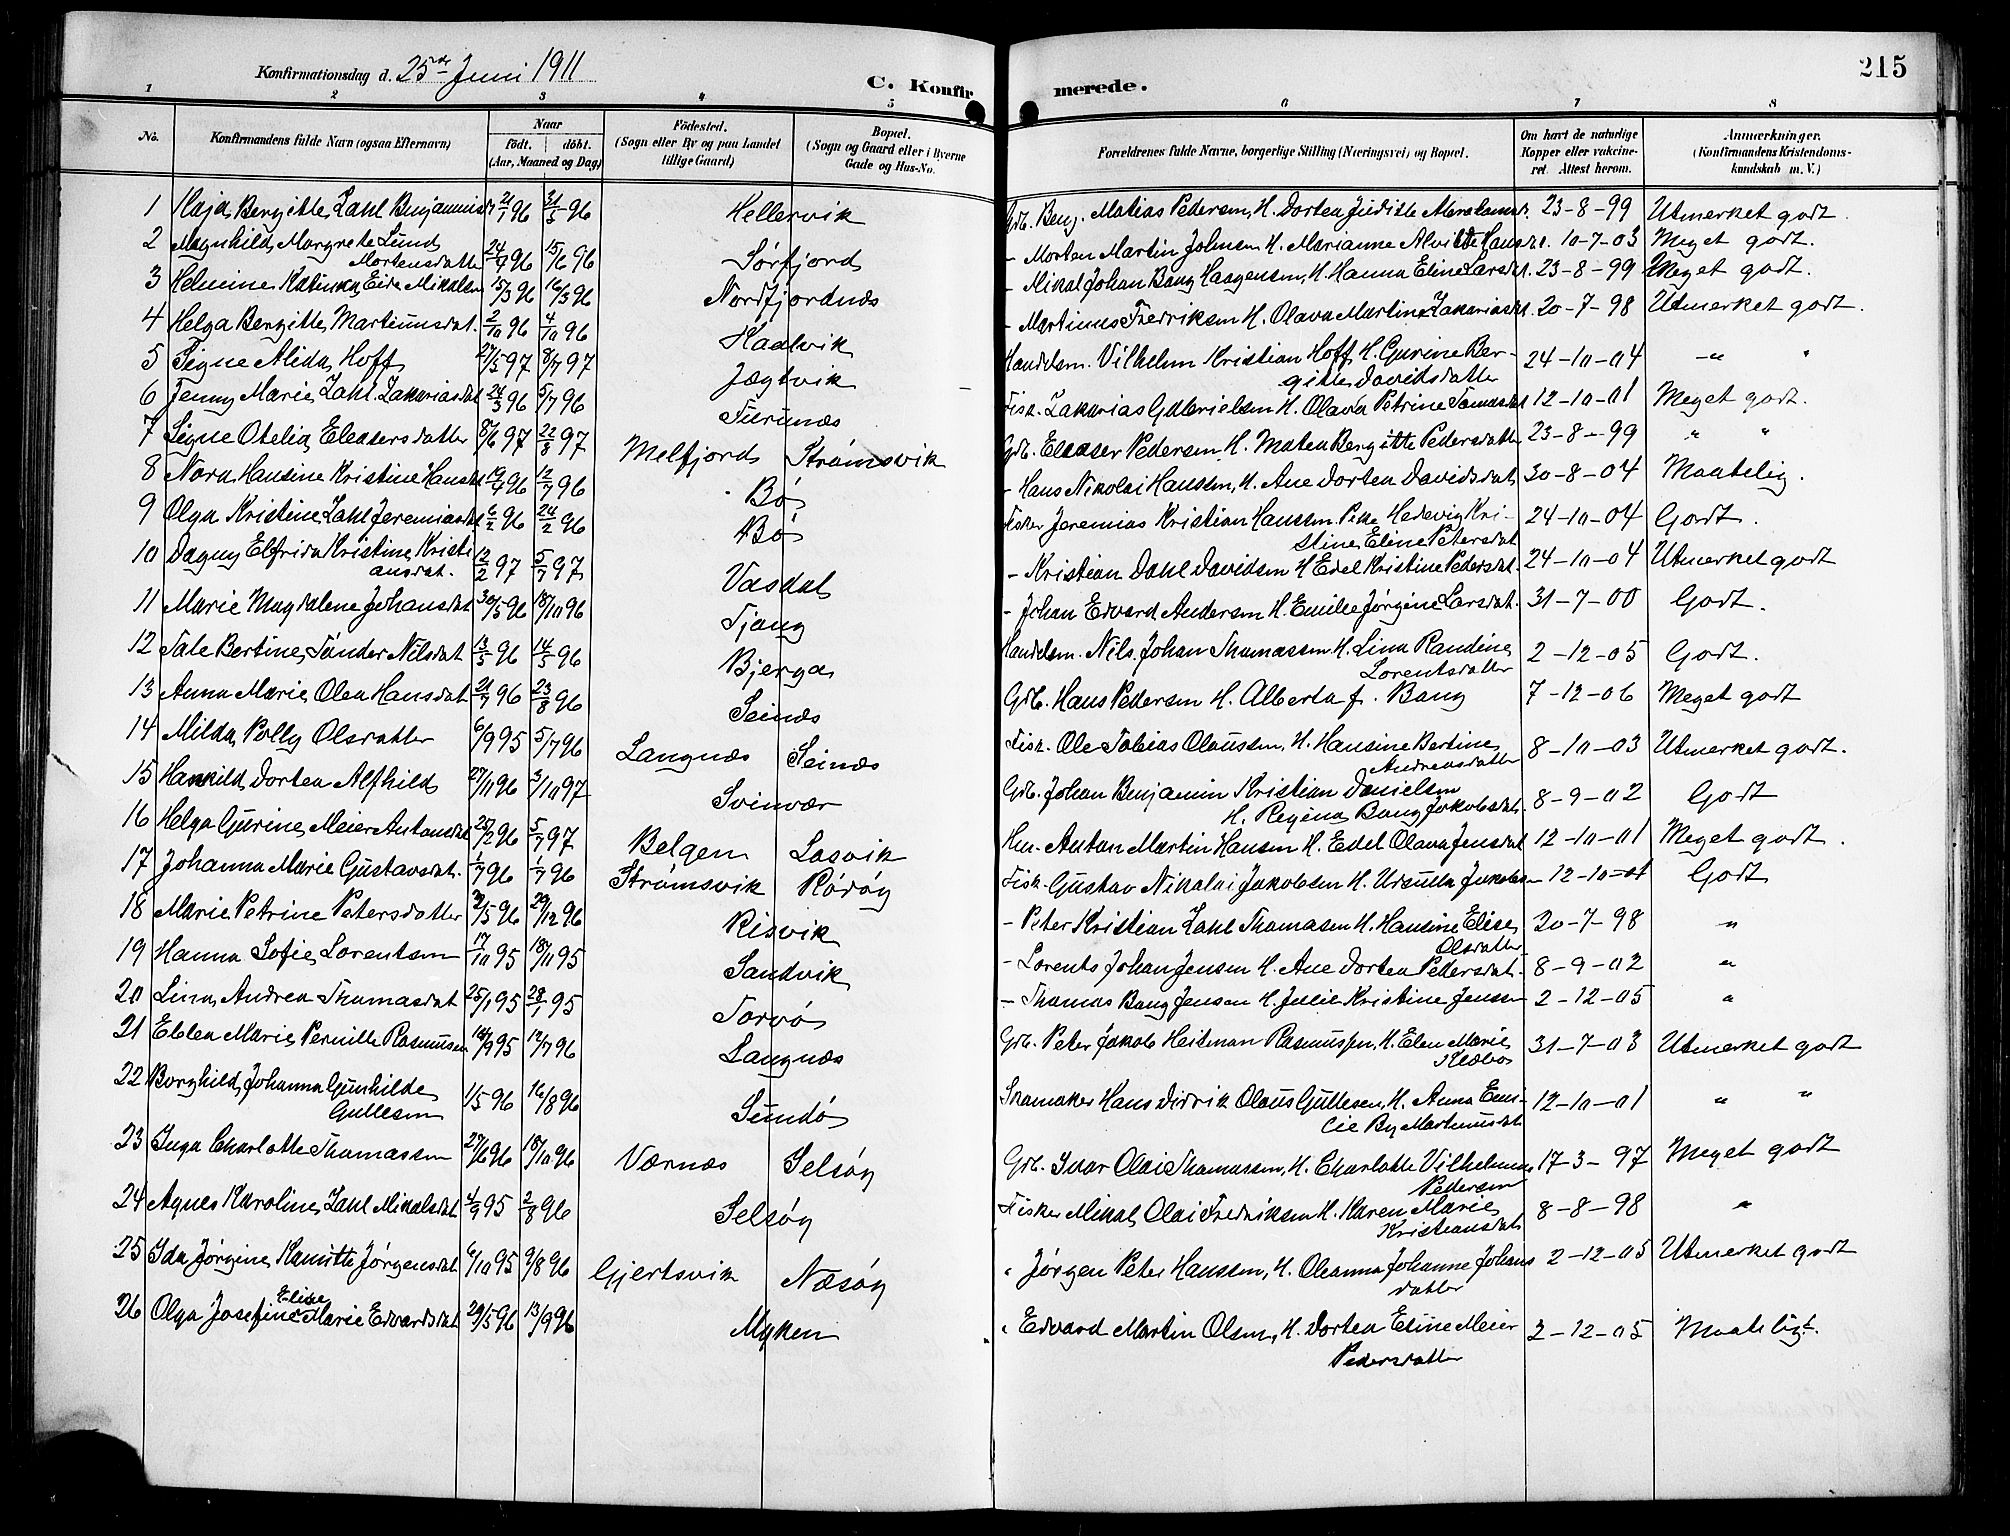 215
Konfirmationsdag d. 25de Juni 1911
C. Konfirmerede.
1 2 3 4 5 6 7 8
No. Konfirmandens fulde Navn (ogsaa Efternavn) Naar født. døbt. (Aar, Maaned og Dag) Fødested. (Sogn eller By og paa Landet tillige Gaard) Bopæl. (Sogn og Gaard eller i Byerne Gade og Hus-No. Forældrenes fulde Navne, borgerlige Stilling (Næringsvei) og Bopæl. Om havt de naturlige Kopper eller vakcineret. Attest herom. Anmærkninger. (Konfirmandens Kristendomskundskab m. V.)
1 Kaja Bergitte Zahl Benjaminsd. 21/1 96 31/5 96 Hellervik Grb. Benj. Matias Pedersen, H. Dorten Judithe Abrahamsd. 23-8-99 Utmerket godt.
2 Magnhild Margrete Lund
Mortensdatter 24/4 96 15/6 96 Sørfjord - Morten Martin Johnsen H. Marianne Alvilde Hansd. 10-7-03 Meget godt.
3 Helmine Katinka Eide Mikalsen 15/3 96 16/3 96 Nordfjordnæs - Mikal Johan Bang Haagensen, H. Hanna Eline Larsdt. 23-8-99 Meget godt.
4 Helga Bergitte Martinusdat. 2/10 96 4/10 96 Haalvik - Martinus Fredriksen H. Olava Martine Zakariasdt. 20-7-98 Utmerket godt.
5 Signe Alida Hoff 27/5 97 8/7 97 Jægtvik Handelsm. Vilhelm Kristian Hoff H. Gurine Ber-
gitte Davidsdatter 24-10-04 -"- "
6 Jenny Marie Zahl Zakariasdat 24/3 96 5/7 96 Furunæs Fisk. Zakarias Gabrielsen H. Olava Petrine Tomasdt 12-10-01 Meget godt.
7 Signe Otelia Eleasersdatter 8/6 97 22/8 97 Melfjord Strømsvik Grb. Eleaser Pedersen H. Maten Bergitte Pedersdatter 23-8-99 " "
8 Nora Hansine Kristine Hansdt 19/4 96 12/7 96 - Bø - Hans Nikolai Hanssen, H. Ane Dorten Davidsdat, 30-8-04 Maatelig.
9 Olga Kristine Zahl Jeremiasdt 6/2 96 24/2 96 Bø Fisker Jeremias Kristian Hanssen Hedevig Kri-
stine Eline Petersdat 24-10-04 Godt.
10 Dagny Elfrida Kristine Kristi
ansdat. 12/2 97 5/7 97 Vasdal - Kristian Dahl Davidsen H Edel Kristine Pedersdat. 24-10-04 Utmerket godt
11 Marie Magdalene Johansdat 30/5 96 18/10 96 Tjong - Johan Edvard Andersen H. Emilie Jørgine Larsdat. 31-7-00 Godt.
12 Tale Bertine Tønder Nilsdat 13/3 96 14/5 96 Bjerga Handelsm. Nils Johan Thomassen H. Lina Randine
Lorentsdatter 2-12-05 Godt.
13 Anna Marie Olea Hansdat 21/7 96 23/8 96 Seinæs Grb. Hans Pedersen H. Alberta f. Bang 7-12-06 Meget godt
14 Milda Polly Olsdatter 6/9 95 5/7 96 Langnæs Seinæs Fisk. Ole Tobias Olaussen, H. Hansine Bertine
Andreasdatter 8-10-03 Utmerket godt.
15 Hanskild Dorten Alfhild 27/11 96 3/10 97 Svinvær Grb. Johan Benjamin Kristian Danielsen
H. Regina Bang Jakobsdat. 8-9-02 Godt
16 Helga Gurine Meier Antonsdat 25/12 96 5/7 97 Belgen Lasvik Anton Martin Hansen H. Edel Olava Jensdat 12-10-01 Meget godt.
17 Johanna Marie Gustavsdat. 1/7 96 1/7 96 Strømsvik Rødøy Fisk. Gustav Nikolai Jakobsen H. Ursulla Jakobs 12-10-01 Godt
18 Marie Petrine Petersdatter 2/5 96 29/12 96 Risvik - Peter Kristian Zahl Thomasen H. Hansine Elise
Olsdatter 20-7-98 "
19 Hanna Sofie Lorentsen 17/10 95 18/11 95 Sandvik - Lorents Johan Jensen H. Ane Dorten Pedersdat. 8-9-02 "
20 Lina Andrea Thomasdat 25/1 95 28/1 95 Torvø - Thomas Bang Jensen H. Julie Kristine Jensen 2-12-05 "
21 Ellen Marie Pernille Rasmussen 14/9 95 12/7 96 Langnæs Grb. Peter Jakob Heitman Rasmussen, H. Elen Marie
Kildbo 31-7-03 Utmerket godt
22 Borghild Johanna Gunhilde
Gullesen 1/5 96 16/8 96 Sundø Skomaker Hans Didrik Olaus Gullesen, H. Anna Emi-
lie By Martinusdat 12-10-01 " "
23 Inga Charlotte Thomassen 27/6 96 18/10 96 Værnæs Selsøy Grb. Ivar Olai Thomassen, H. Charlotte Vilhelmine
Pedersen 17-3-97 Meget godt
24 Agnes Karoline Zahl Mikalsdat 4/9 95 2/8 96 Selsøy Fisker Mikal Olai Fredriksen H. Karen Marie
Kristiansdat 8-8-98 "
25 Ida Jørgine Kamitte Jørgensdat 6/10 95 9/8 96 Gjertsvik Næsøy " Jørgen Peter Hanssen, H. Oleanna Johanne Johans
datter 2-12-05 Utmerket godt
Elise
26 Olga Josefine Marie Edvardsdat 29/5 96 13/9 96 Myken " Edvard Martin Olsen, H. Dorten Eline Meier
Pedersdatter 2-12-05 Maateligt.